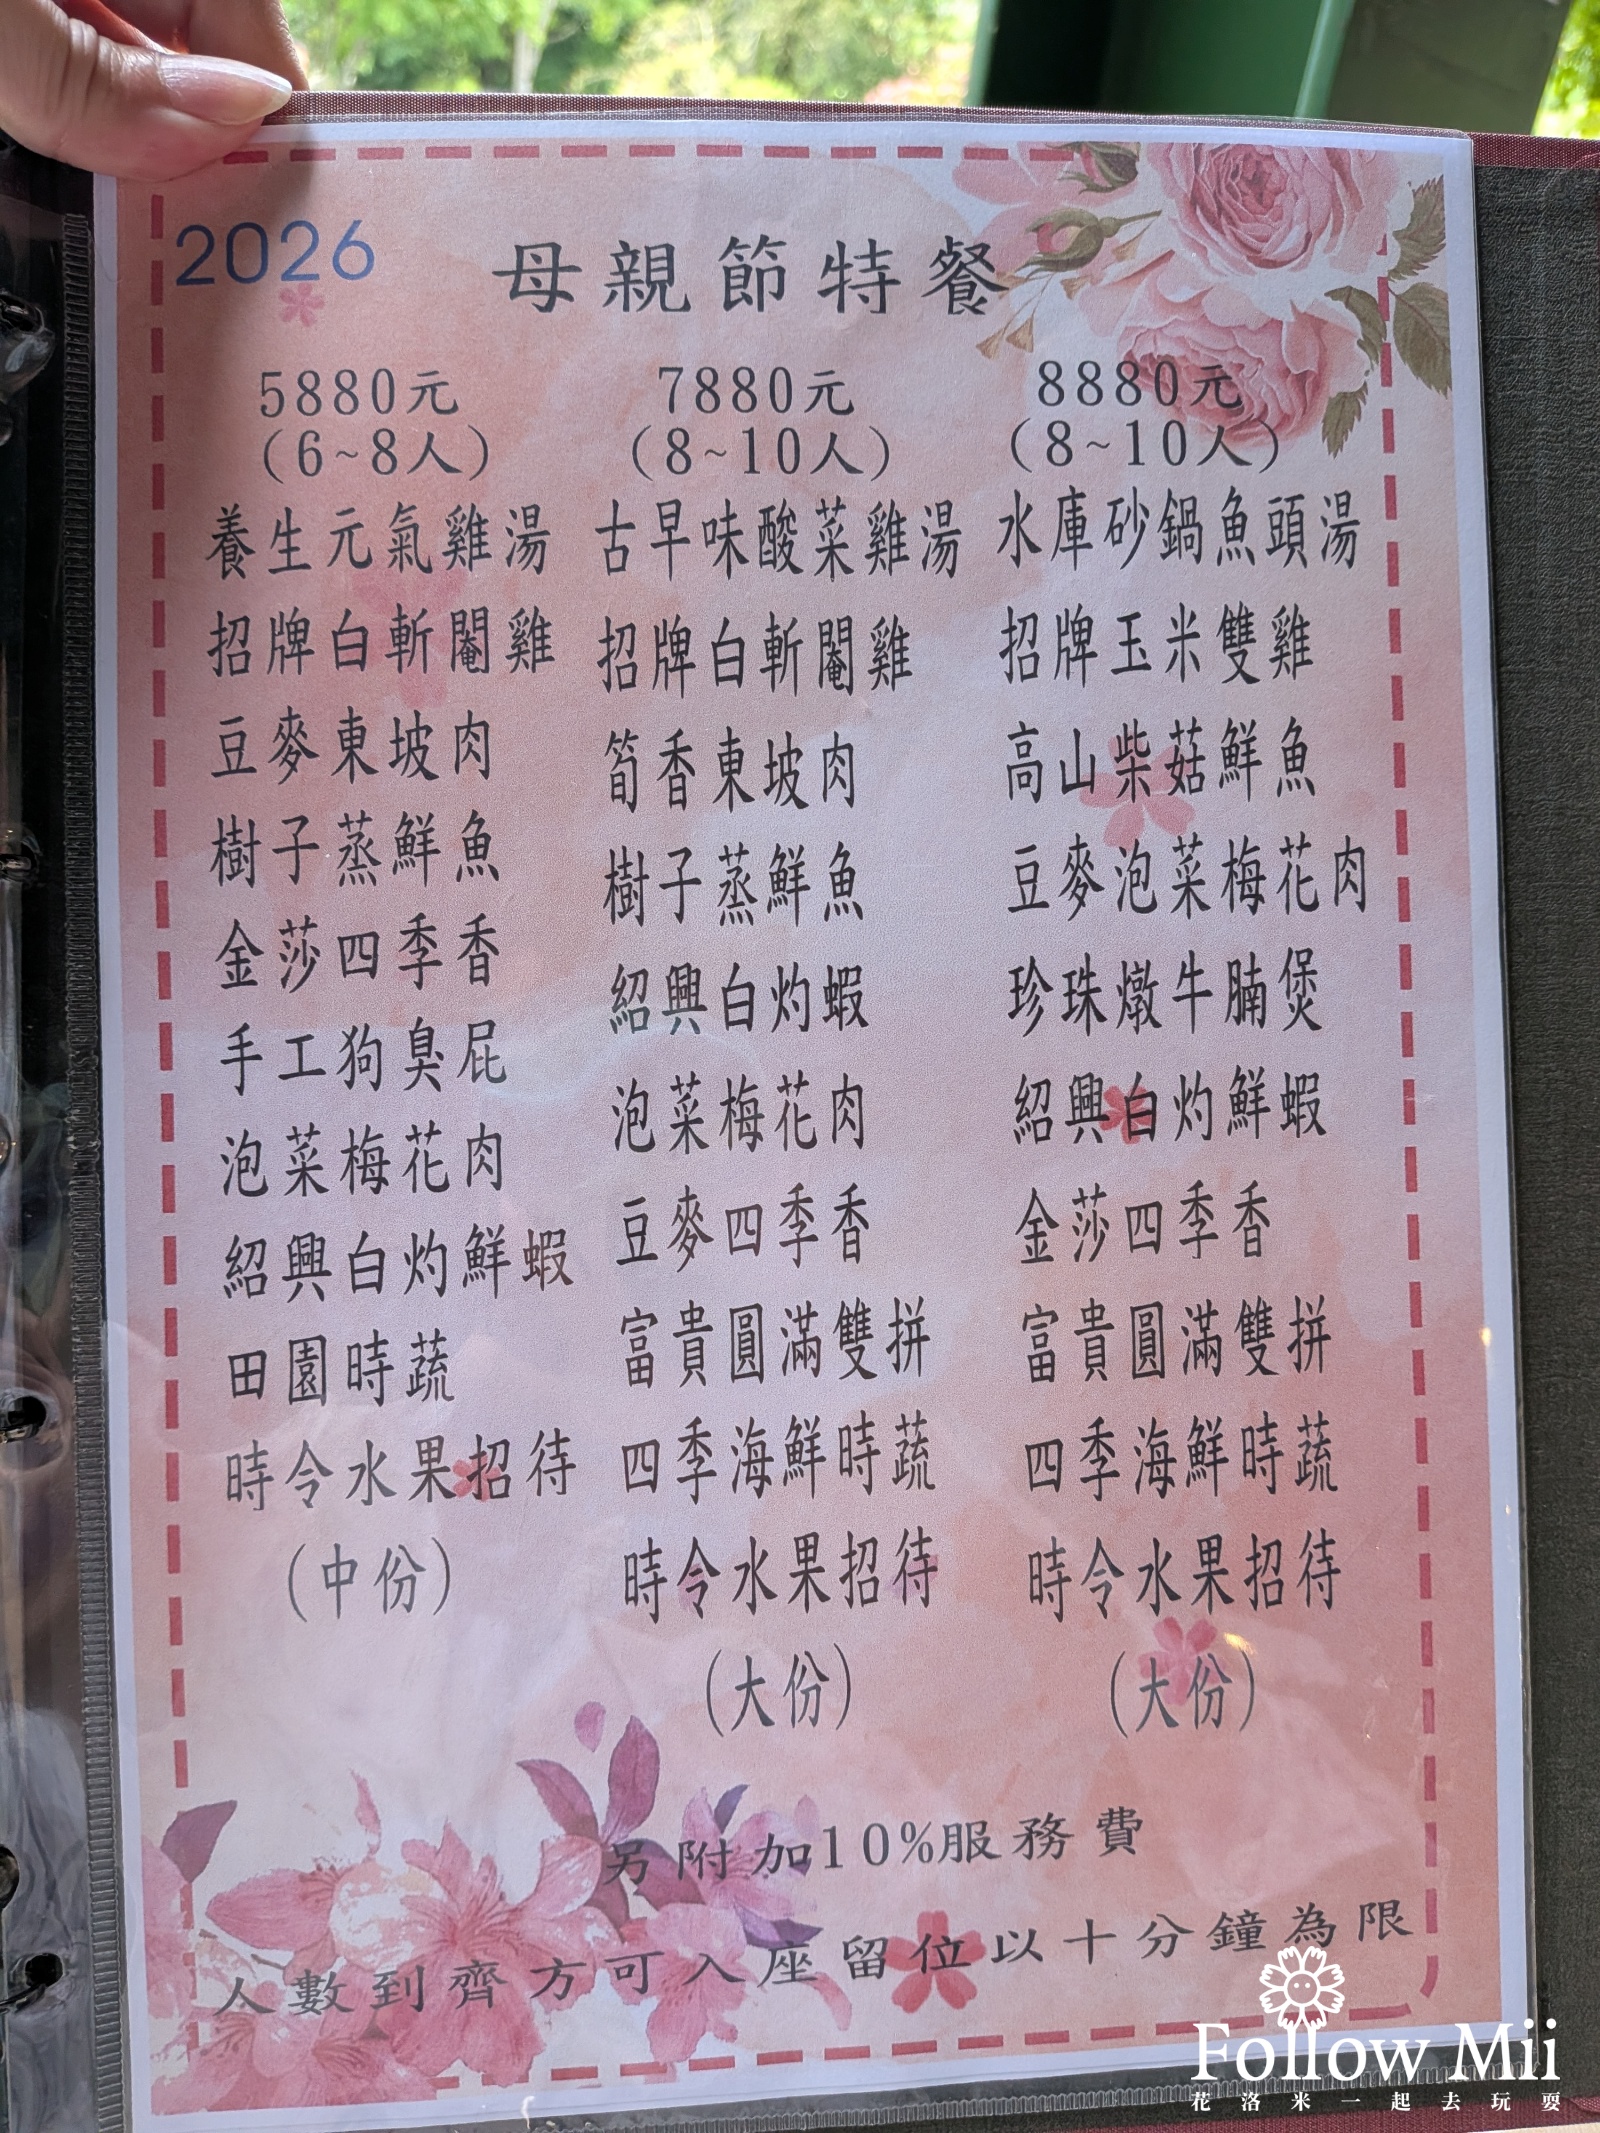 2026
母親節特餐
5880元
（6~8人）
養生元氣雞湯
招牌白斬閹雞
豆麥東坡肉
樹子蒸鮮魚
金莎四季香
手工狗臭屁
泡菜梅花肉
紹興白灼鮮蝦
田園時蔬
時令水果招待
（中份）
7880元
（8~10人）
古早味酸菜雞湯
招牌白斬閹雞
筍香東坡肉
樹子蒸鮮魚
紹興白灼蝦
泡菜梅花肉
豆麥四季香
富貴圓滿雙拼
四季海鮮時蔬
時令水果招待
（大份）
8880元
（8~10人）
水庫砂鍋魚頭湯
招牌玉米雙雞
高山柴菇鮮魚
豆麥泡菜梅花肉
珍珠燉牛腩煲
紹興白灼鮮蝦
金莎四季香
富貴圓滿雙拼
四季海鮮時蔬
時令水果招待
（大份）
另附加10%服務費
人數到齊方可入座留位以十分鐘為限
Follow Mii
花洛米一起去玩耍